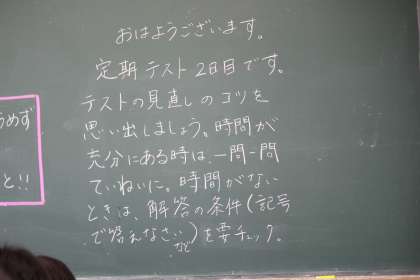 おはようございます。
定期テスト2日目です。
テストの見直しのコツを
思い出しましょう。時間が
充分にある時は、一問一問
ていねいに。時間がない
ときは、解答の条件(記号
で答えなさいなど)を要チェック。
めず
と!!